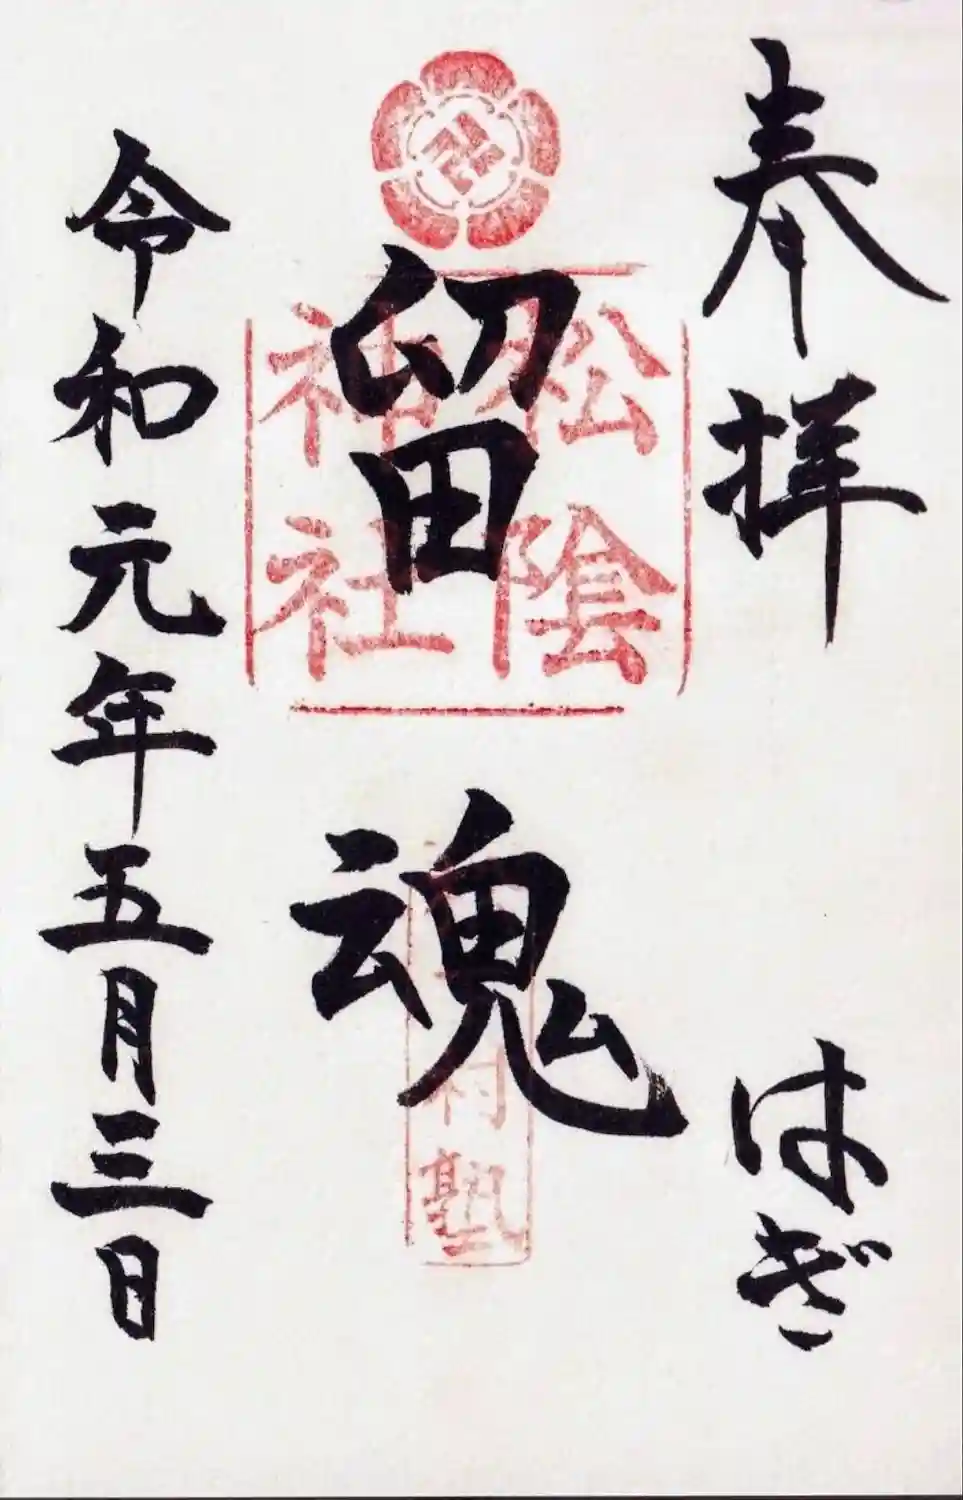 奉拝 はぎ
松陰
神社
留魂
村塾
令和元年五月三日